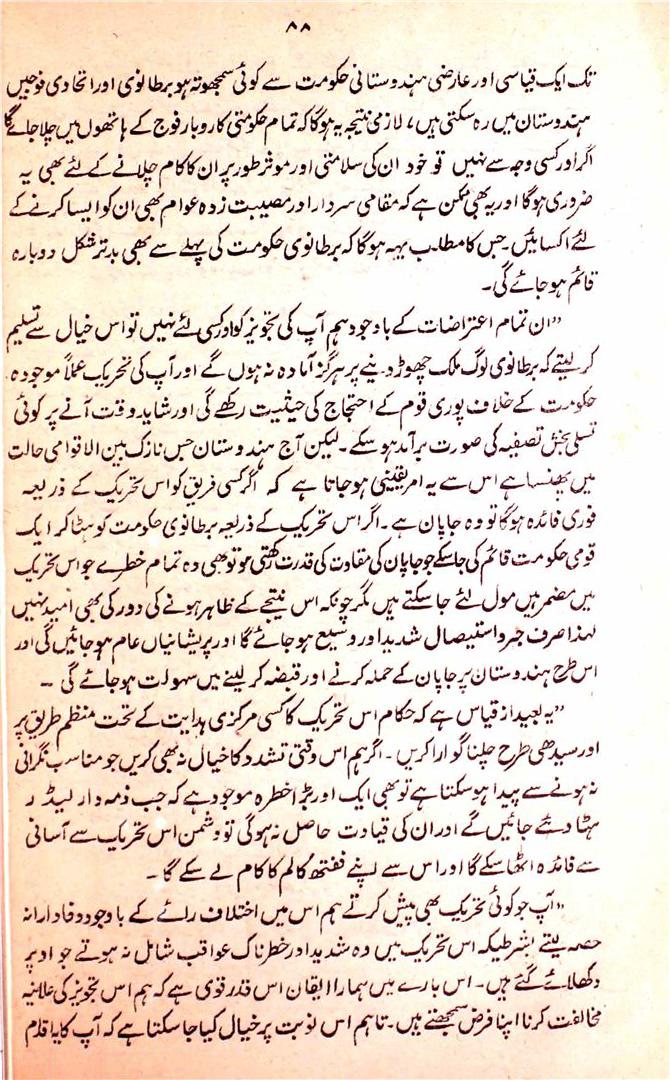 ۸۸
تک ایک قیاسی اور عارضی ہندوستانی حکومت سے کوئی سمجھوتہ ہو برطانوی اور اتحادی فوجیں
ہندوستان میں رہ سکتی ہیں، لازمی نتیجہ یہ ہوگا کہ تمام حکومتی کاروبار فوج کے ہاتھوں میں چلا جائے گا
اگر اور کسی وجہ سے نہیں تو خود ان کی سلامتی اور موثر طور پر ان کا کام چلانے کے لئے بھی یہ
ضروری ہوگا اور یہ بھی ممکن ہے کہ مقامی سردار اور مصیبت زدہ عوام بھی ان کو ایسا کرنے کے
لئے اکسائیں۔ جس کا مطلب یہہ ہوگا کہ برطانوی حکومت کی پہلے سے بھی بدتر شکل دوبارہ
قائم ہو جائے گی۔
”ان تمام اعتراضات کے باوجود ہم آپ کی تجویز کو اور کسی لئے نہیں تو اس خیال سے تسلیم
کر لیتے کہ برطانوی لوگ ملک چھوڑ دینے پر ہرگز آمادہ نہ ہوں گے اور آپ کی تحریک عملاً موجودہ
حکومت کے خلاف پوری قوم کے احتجاج کی حیثیت رکھے گی اور شاید وقت آنے پر کوئی
تسلی بخش تصفیہ کی صورت برآمد ہو سکے۔ لیکن آج ہندوستان جس نازک بین الاقوامی حالت
میں پھنسا ہے اس سے یہ امر یقینی ہو جاتا ہے کہ اگر کسی فریق کو اس تحریک کے ذریعہ
فوری فائدہ ہوگا تو وہ جاپان ہے۔ اگر اس تحریک کے ذریعہ برطانوی حکومت کو ہٹا کر ایک
قومی حکومت قائم کی جا سکے جو جاپان کی مقاوت کی قدرت رکھتی ہو تو بھی وہ تمام خطرے جو اس تحریک
میں مضمر ہیں مول لئے جا سکتے ہیں مگر چونکہ اس نتیجے کے ظاہر ہونے کی دور کی بھی امید نہیں
لہذا صرف جبر و استیصال شدید اور وسیع ہو جائے گا اور پریشانیاں عام ہو جائیں گی اور
اس طرح ہندوستان پر جاپان کے حملہ کرنے اور قبضہ کر لینے میں سہولت ہو جائے گی ۔
”یہ بعید از قیاس ہے کہ حکام اس تحریک کا کسی مرکزی ہدایت کے تحت منظم طریق پر
اور سیدھی طرح چلنا گوارا کریں۔ اگر ہم اس وقتی تشدد کا خیال نہ بھی کریں جو مناسب نگرانی
نہ ہونے سے پیدا ہو سکتا ہے تو بھی ایک اور بڑا خطرہ موجود ہے کہ جب ذمہ دار لیڈر
ہٹا دئے جائیں گے اور ان کی قیادت حاصل نہ ہوگی تو دشمن اس تحریک سے آسانی
سے فائدہ اٹھا سکے گا اور اس سے اپنے ففتھ کالم کا کام لے سکے گا ۔
”آپ جو کوئی تحریک بھی پیش کرتے ہم اس میں اختلاف رائے کے باوجود وفادارانہ
حصہ لیتے بشرطیکہ اس تحریک میں وہ شدید اور خطرناک عواقب شامل نہ ہوتے جو اوپر
دکھلائے گئے ہیں۔ اس بارے میں ہمارا ایقان اس قدر قوی ہے کہ ہم اس تجویز کی علانیہ
مخالفت کرنا اپنا فرض سمجھتے ہیں۔ تاہم اس نوبت پر خیال کیا جا سکتا ہے کہ آپ کا یہ اقدام